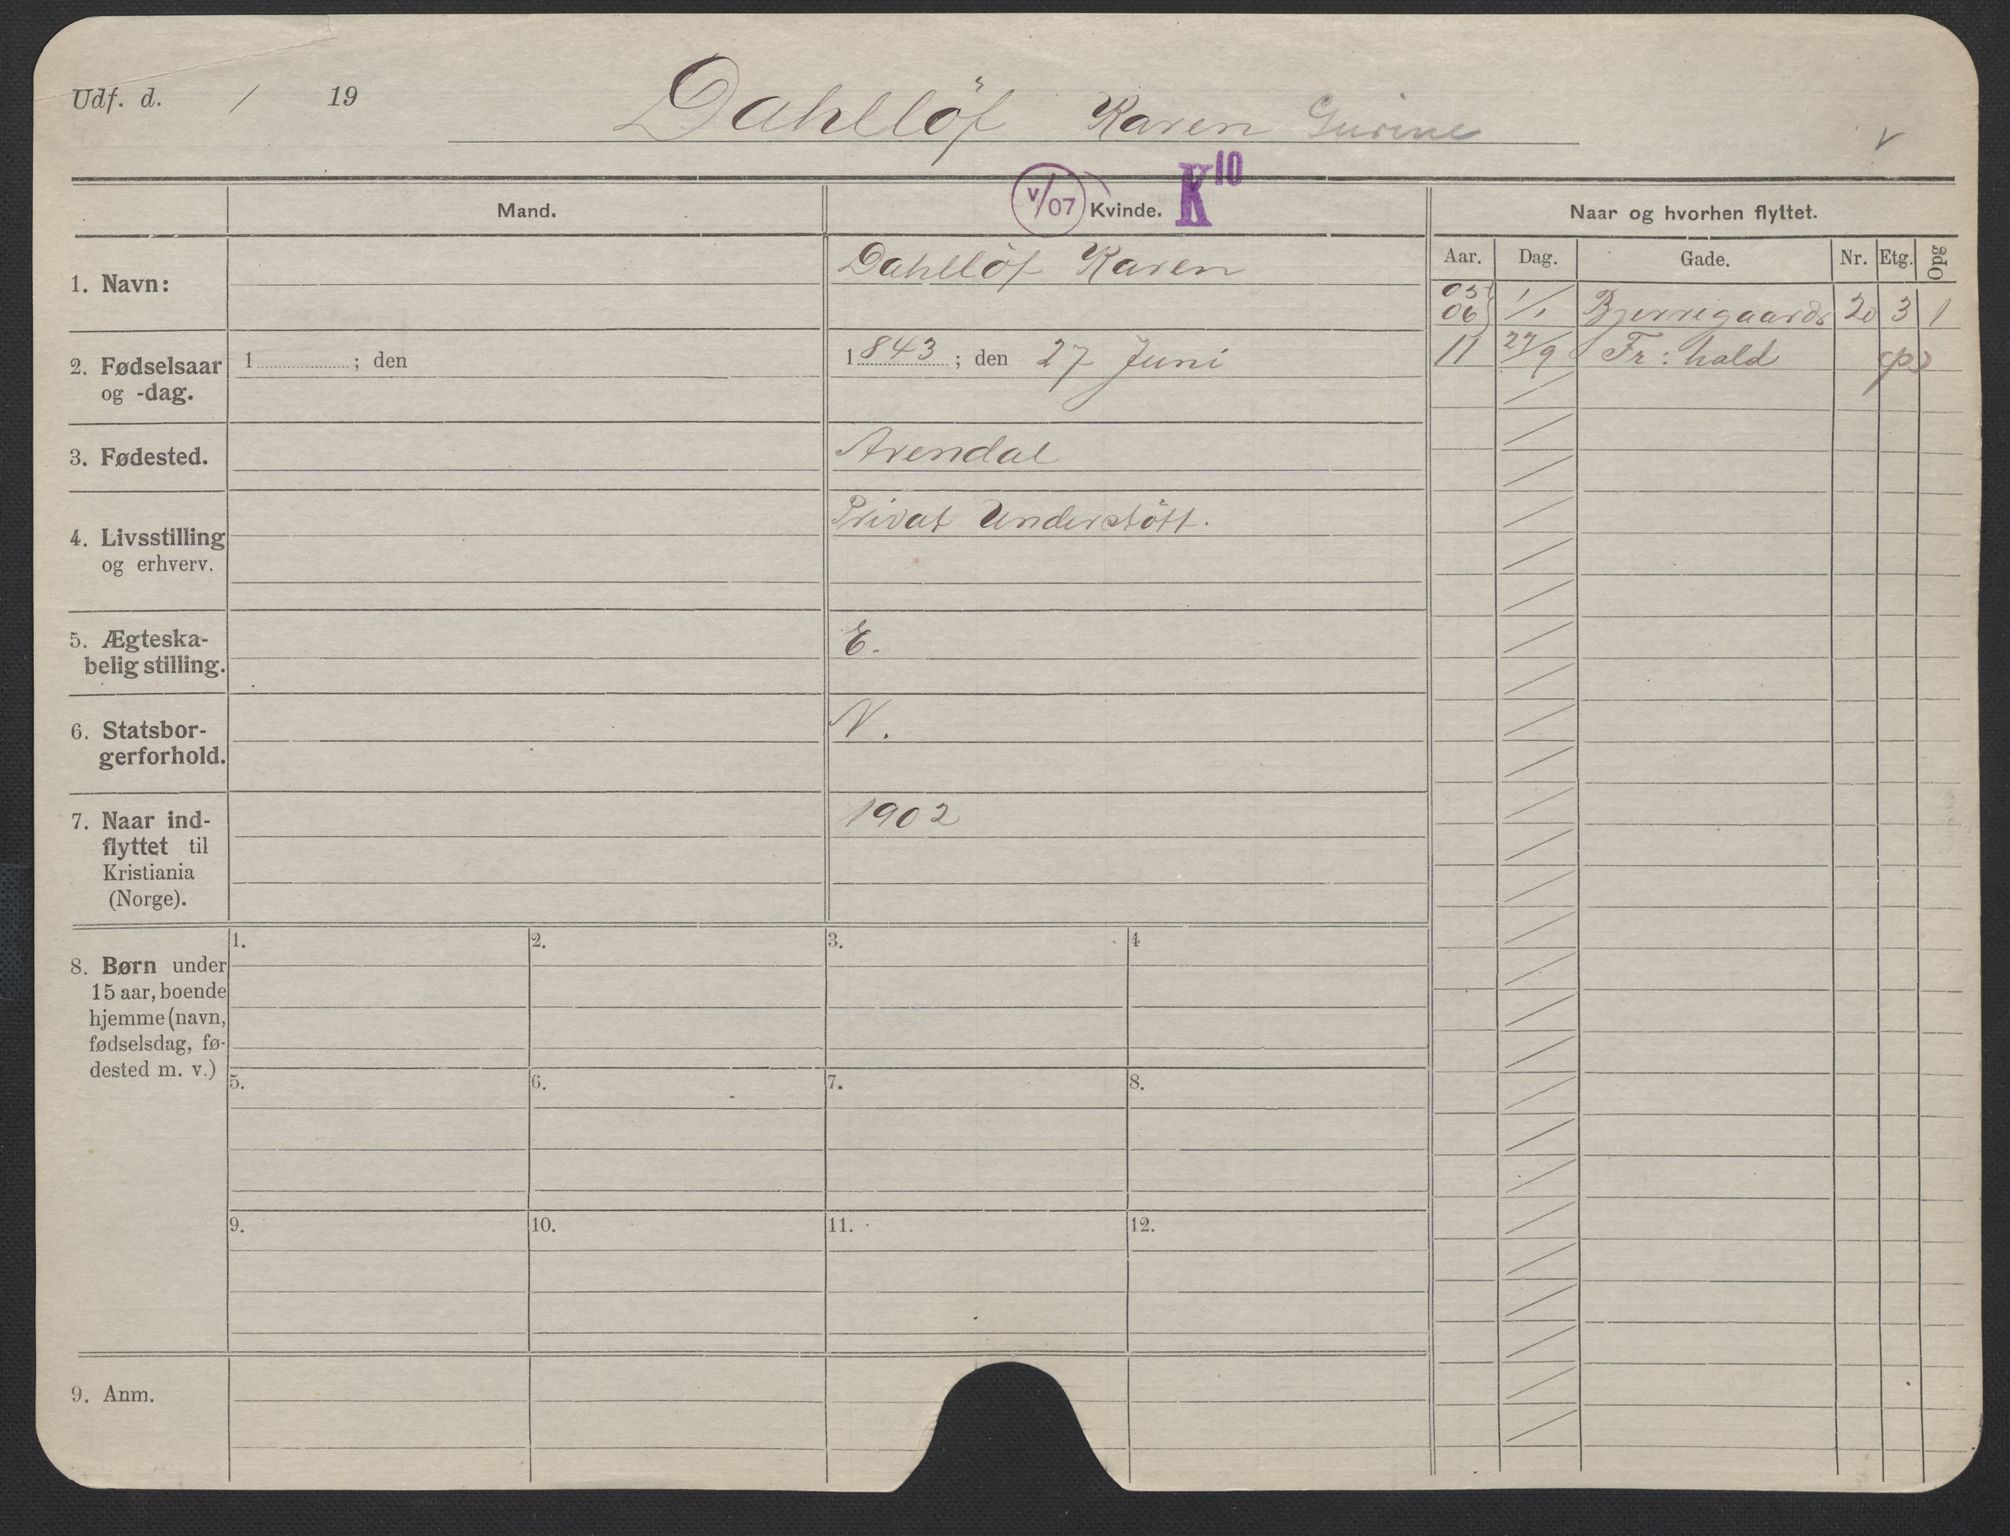 Udf. d. / 19
Dahllöf Karen Gurine
v
Mand.
v/07 Kvinde. K10
Naar og hvorhen flyttet.
Aar. Dag. Gade. Nr. Etg. Opg
1. Navn:
Dahllöf Karen
05
06 1/1 Bjerregaards 20 3 1
11 27/9 Fr: hald (p)
2. Fødselsaar
og -dag.
1 ; den
1843 ; den 27 Juni
3. Fødested.
Arendal
4. Livsstilling
og erhverv.
Privat Understött.
5. Ægteska-
belig stilling.
E.
6. Statsbor-
gerforhold.
N.
7. Naar ind-
flyttet til
Kristiania
(Norge).
1902
8. Børn under
15 aar, boende
hjemme (navn,
fødselsdag, fø-
dested m. v.)
1. 2. 3. 4
5. 6. 7. 8.
9. 10. 11. 12.
9. Anm.